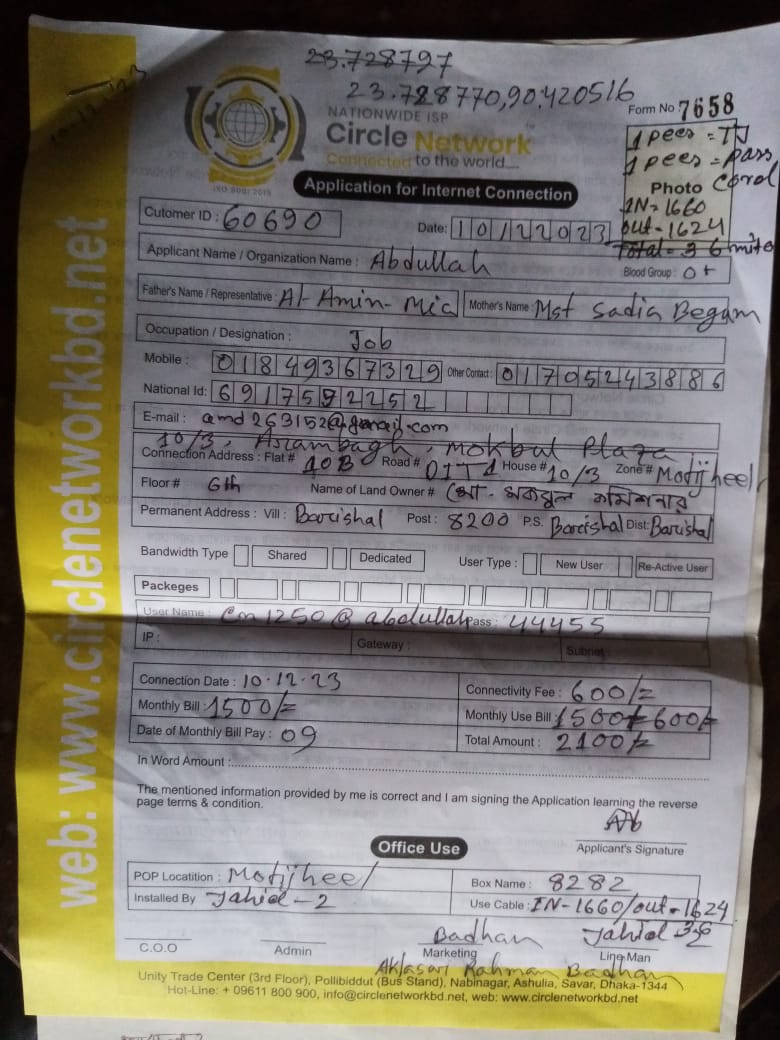 23.728797
23.728770,90.420516
10.12.23
NATIONWIDE ISP
Circle Network
Connected to the world....
ISO 9001:2015
Form No 7658
1 pees = TJ
1 pees = pass
Photo Corol
IN=1660
out-1624
Total=36 mite
Application for Internet Connection
Cutomer ID : 60690
Date: 10122023
Applicant Name / Organization Name : Abdullah
Blood Group : O+
Father's Name / Representative : Al-Amin-Mia Mother's Name : Mst Sadia Begum
Occupation / Designation : Job
Mobile : 01849367329 Other Contact : 01705243886
National Id: 6917592252
E-mail : amd263152@gmail.com
10/3, Arambagh, Mokbul Plaza
Connection Address : Flat # 10B Road # DIT1 House # 10/3 Zone # Motijheel
Floor # 6th Name of Land Owner # মো - মকবুল কমিশনার
Permanent Address : Vill : Barishal Post : 8200 P.S. Barishal Dist: Barishal
Bandwidth Type Shared Dedicated User Type : New User Re-Active User
Packeges
User Name : Cn1250@abdullah Pass : 44455
IP : Gateway : Subnet :
Connection Date : 10.12.23 Connectivity Fee : 600/=
Monthly Bill : 1500/= Monthly Use Bill : 1500+600/=
Date of Monthly Bill Pay : 09 Total Amount : 2100/=
In Word Amount :
The mentioned information provided by me is correct and I am signing the Application learning the reverse
page terms & condition.
Applicant's Signature
Office Use
POP Locatition : Motijheel Box Name : 8282
Installed By Jahid-2 Use Cable : IN-1660/out-1624
Badhan Jahid 36
C.O.O Admin Marketing Line Man
Aklasur Rahman Badhan
Unity Trade Center (3rd Floor), Pollibiddut (Bus Stand), Nabinagar, Ashulia, Savar, Dhaka-1344
Hot-Line: + 09611 800 900, info@circlenetworkbd.net, web: www.circlenetworkbd.net
web: www.circlenetworkbd.net